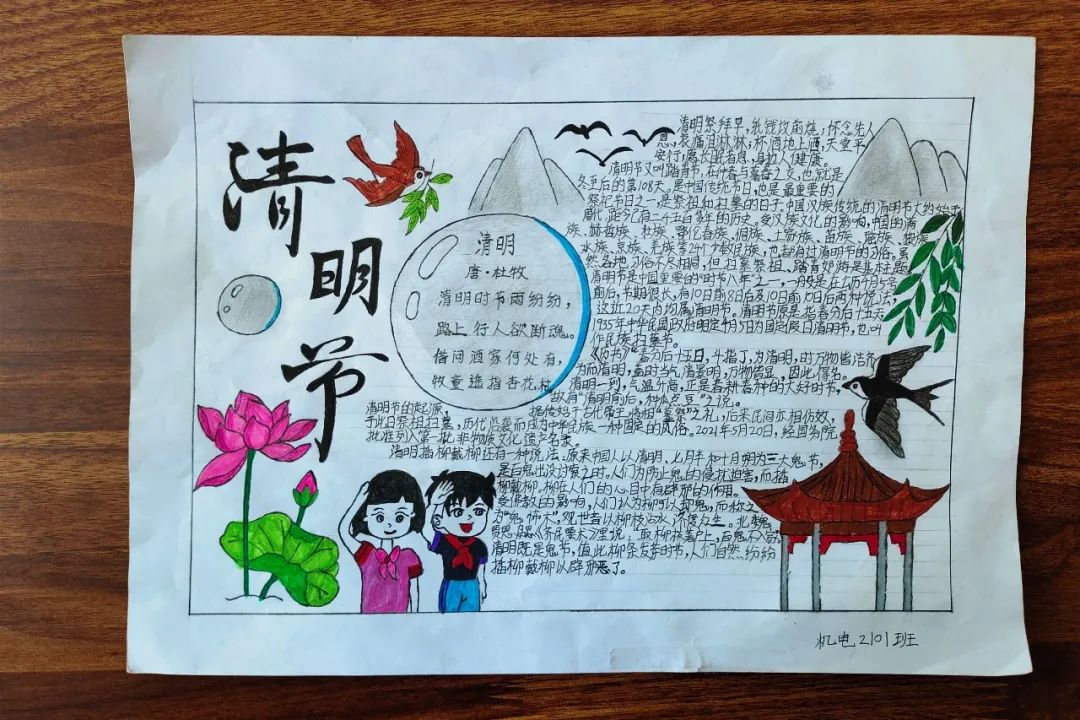 清明节
清明
唐·杜牧
清明时节雨纷纷，
路上行人欲断魂。
借问酒家何处有，
牧童遥指杏花村。
清明祭拜早，纸钱坟前烧；怀念先人
恩，哀痛泪淋淋；杯酒地上洒，天堂平
安行；愿长出有息，身边人健康。
清明节又叫踏青节，在仲春与暮春之交，也就是
冬至后的第108天。是中国传统节日，也是最重要的
祭祀节日之一，是祭祖和扫墓的日子，中国汉族传统的清明节大约始于
周代，距今已有二千五百多年的历史。受汉族文化的影响，中国的满
族、赫哲族、壮族、鄂伦春族、侗族、土家族、苗族、瑶族、黎族、
水族、京族、羌族等24个少数民族，也都有过清明节的习俗。虽
然各地习俗不尽相同，但扫墓祭祖、踏青郊游是基本主题
清明节是中国重要的"时节八年"之一，一般是在公历4月5号
前后，节期很长，有10日前8日后及10日前10日后两种说法，
这近20天内均属清明节。清明节原是指春分后十五天
1935年中华民国政府明定4月5日为国定假日清明节，也叫
作民族扫墓节。
《历书》："春分后十五日，斗指丁，为清明，时万物皆洁齐
为而清明，盖时当气清景明，万物皆显，因此得名。
清明一到，气温升高，正是春耕春种的大好时节，
故有"清明前后，种瓜点豆"之说。
清明节的起源，据传始于古代帝王将相"墓祭"之礼，后来民间亦相仿效，
于此日祭祖扫墓，历代沿袭而成为中华民族一种固定的风俗。2021年5月20日，经国务院
批准列入第一批非物质文化遗产名录。
清明插柳戴柳还有一种说法：原来中国人以清明、七月半和十月朔为三大鬼节，
是百鬼出没讨索之时。人们为防止鬼的侵扰迫害，而插
柳戴柳。柳在人们的心目中有辟邪的作用。
受佛教的影响，人们认为柳可以却鬼，而称之
为"鬼怖木"，观世音以柳枝沾水济度众生。北魏
贾思勰《齐民要术》里说："取柳枝著户上，百鬼不入家。"
清明既是鬼节，值此柳条发芽时节，人们自然纷纷
插柳戴柳以辟邪恶了。
机电2101班